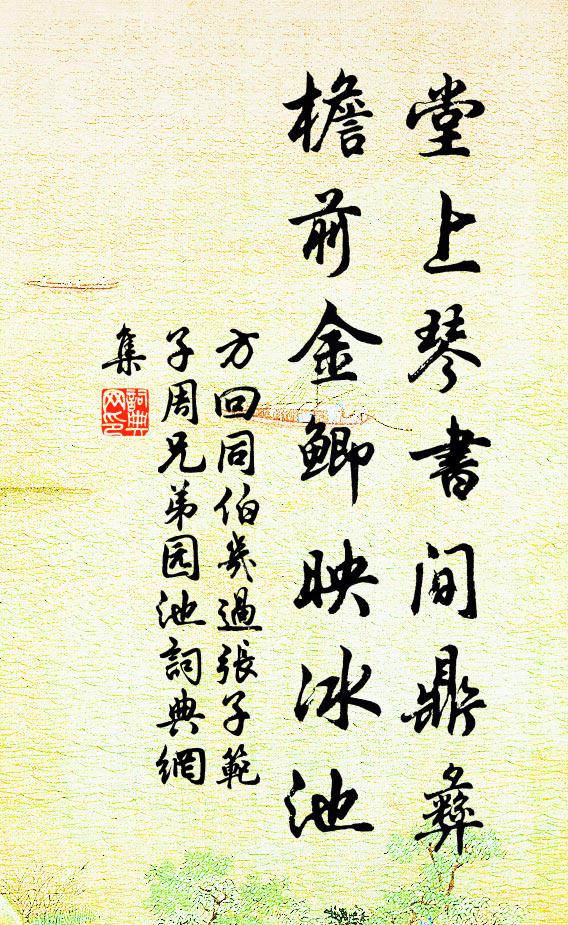 堂上琴書間鼎彝
檐前金鯽映冰池
方回同伯幾過張子範
子周兄弟园池詞典網
集
詞典網印